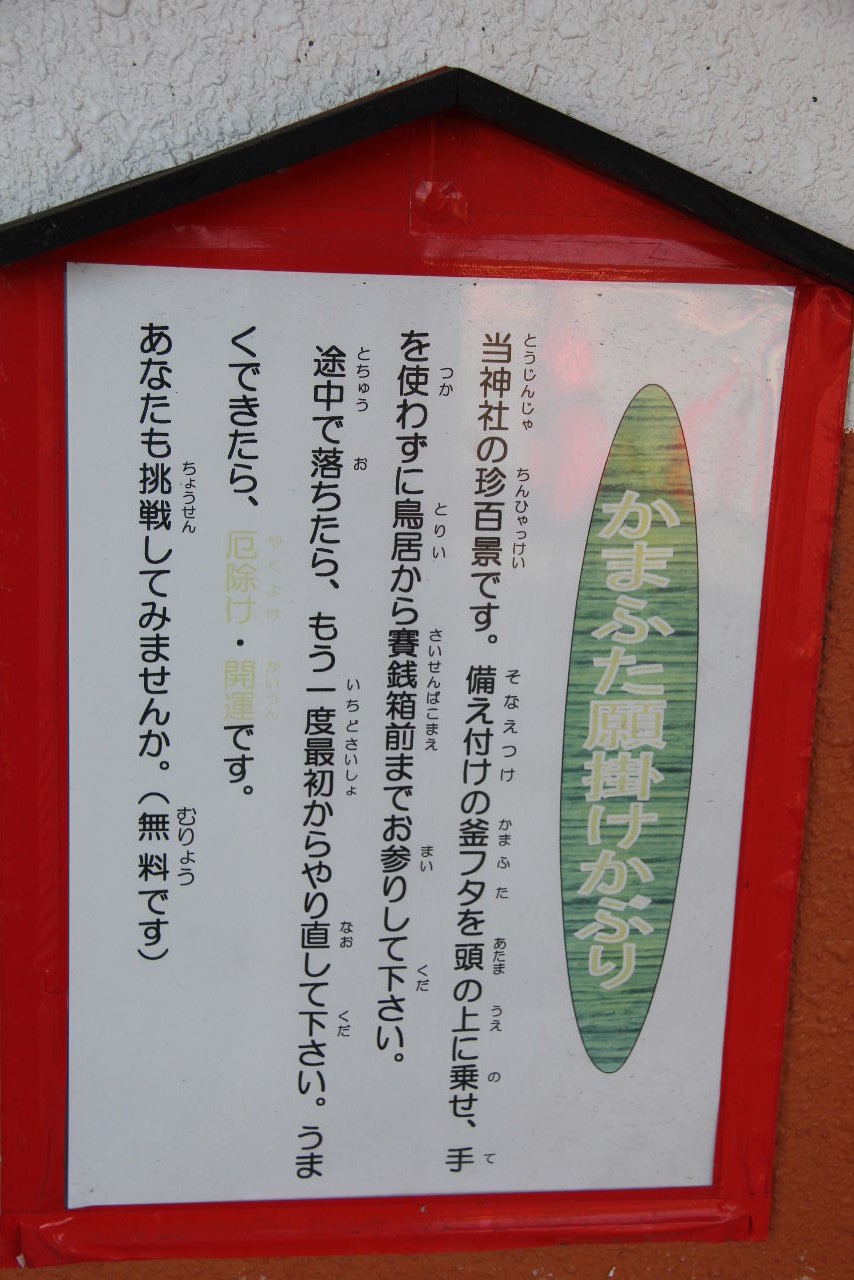 かまふた願掛けかぶり
当神社の珍百景です。備え付けの釜フタを頭の上に乗せ、手
を使わずに鳥居から賽銭箱前までお参りして下さい。
途中で落ちたら、もう一度最初からやり直して下さい。うま
くできたら、厄除け・開運です。
あなたも挑戦してみませんか。（無料です）